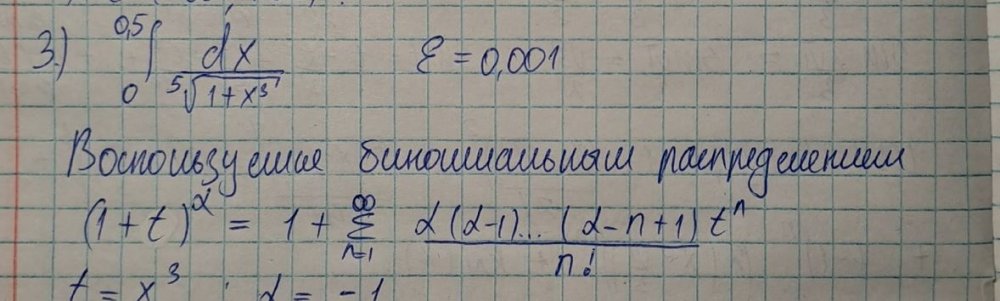 3.) 0,5 ∫ 0 dx / ⁵√(1+x³) ε = 0,001
Воспользуемся биномиальным распределением
(1+t)^α = 1 + ∑_{n=1}^{∞} α(α-1)...(α-n+1) t^n / n!
t = x³ ; α = -1